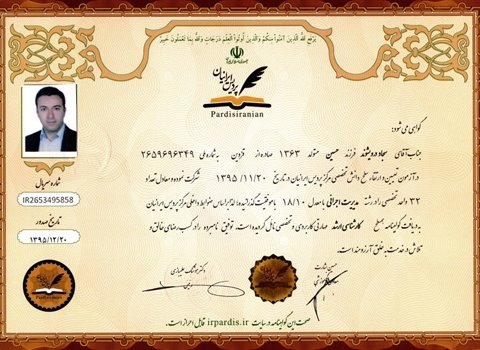 يَرْفَعِ اللَّهُ الَّذِينَ آمَنُوا مِنكُمْ وَالَّذِينَ أُوتُوا الْعِلْمَ دَرَجَاتٍ وَاللَّهُ بِمَا تَعْمَلُونَ خَبِيرٌ
پردیس ایرانیان
Pardisiranian
گواهی می شود:
جناب آقای سجاد درویشوند فرزند حسین متولد ۱۳۶۳ صادره از قزوین به شماره ملی ۲۶۵۹۶۹۶۳۴۹
در آزمون تعیین و ارتقاء سطح دانش تخصصی مرکز پردیس ایرانیان در تاریخ ۱۳۹۵/۱۱/۲۰ شرکت نموده و معادل تعداد
۳۲ واحد تخصصی را در رشته مدیریت اجرائی با معدل ۱۸/۱۰ با موفقیت گذرانده؛ لذا بر اساس ضوابط داخلی مرکز پردیس ایرانیان
به دریافت گواهینامه سطح کارشناسی ارشد مهارتی کاربردی و تخصصی نائل گردیده است. توفیق نامبرده را در کسب رضای خالق و
تلاش در خدمت به خلق آرزومند است.
شماره سریال
IR2653495858
تاریخ صدور
۱۳۹۵/۱۲/۲۰
صحت این گواهینامه در سایت irpardis.ir قابل احراز است.